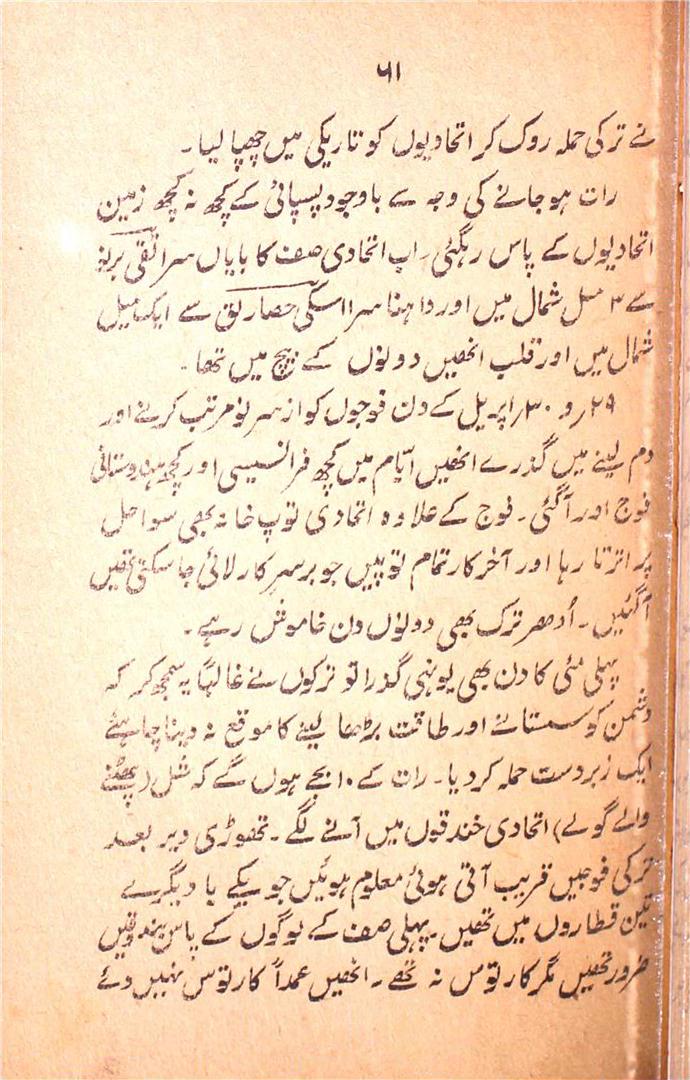 ۵۱
نے ترکی حملہ روک کر اتحادیوں کو تاریکی میں چھپا لیا۔
رات ہو جانے کی وجہ سے باوجود پسپائی کے کچھ نہ کچھ زمین
اتحادیوں کے پاس رہگئی۔ اب اتحادی صف کا بایاں سرا تقی برنو
سے ۳ میل شمال میں اور داہنا سرا اسکی حصارلق سے ایک میل
شمال میں اور قلب انھیں دولؤں کے بیچ میں تھا۔
۲۹ر و ۳۰ر اپریل کے دن فوجوں کو از سر نو مرتب کرنے اور
دم لینے میں گذرے انھیں ایّام میں کچھ فرانسیسی اور کچھ ہندوستانی
فوج اور آگئی۔ فوج کے علاوہ اتحادی توپ خانہ بھی سواحل
پر اترتا رہا اور آخر کار تمام توپیں جو برسر کار لائی جا سکتی تھیں
آگئیں۔ اُدھر ترک بھی دولؤں دن خاموش رہے۔
پہلی مئی کا دن بھی یونہی گذرا تو ترکوں نے غالباً یہ سمجھ کر کہ
دشمن کو سستانے اور طاقت بڑھا لینے کا موقع نہ دینا چاہئے
ایک زبردست حملہ کر دیا۔ رات کے ۱۰ بجے ہوں گے کہ شل (پھٹنے
والے گولے) اتحادی خندقوں میں آنے لگے۔ تھوڑی دیر بعد
ترکی فوجیں قریب آتی ہوئی معلوم ہوئیں جو یکے با دیگرے
تین قطاروں میں تھیں پہلی صف کے لوگوں کے پاس بندوقیں
ضرور تھیں مگر کارتوس نہ تھے۔ انھیں عمداً کارتوس نہیں دئے